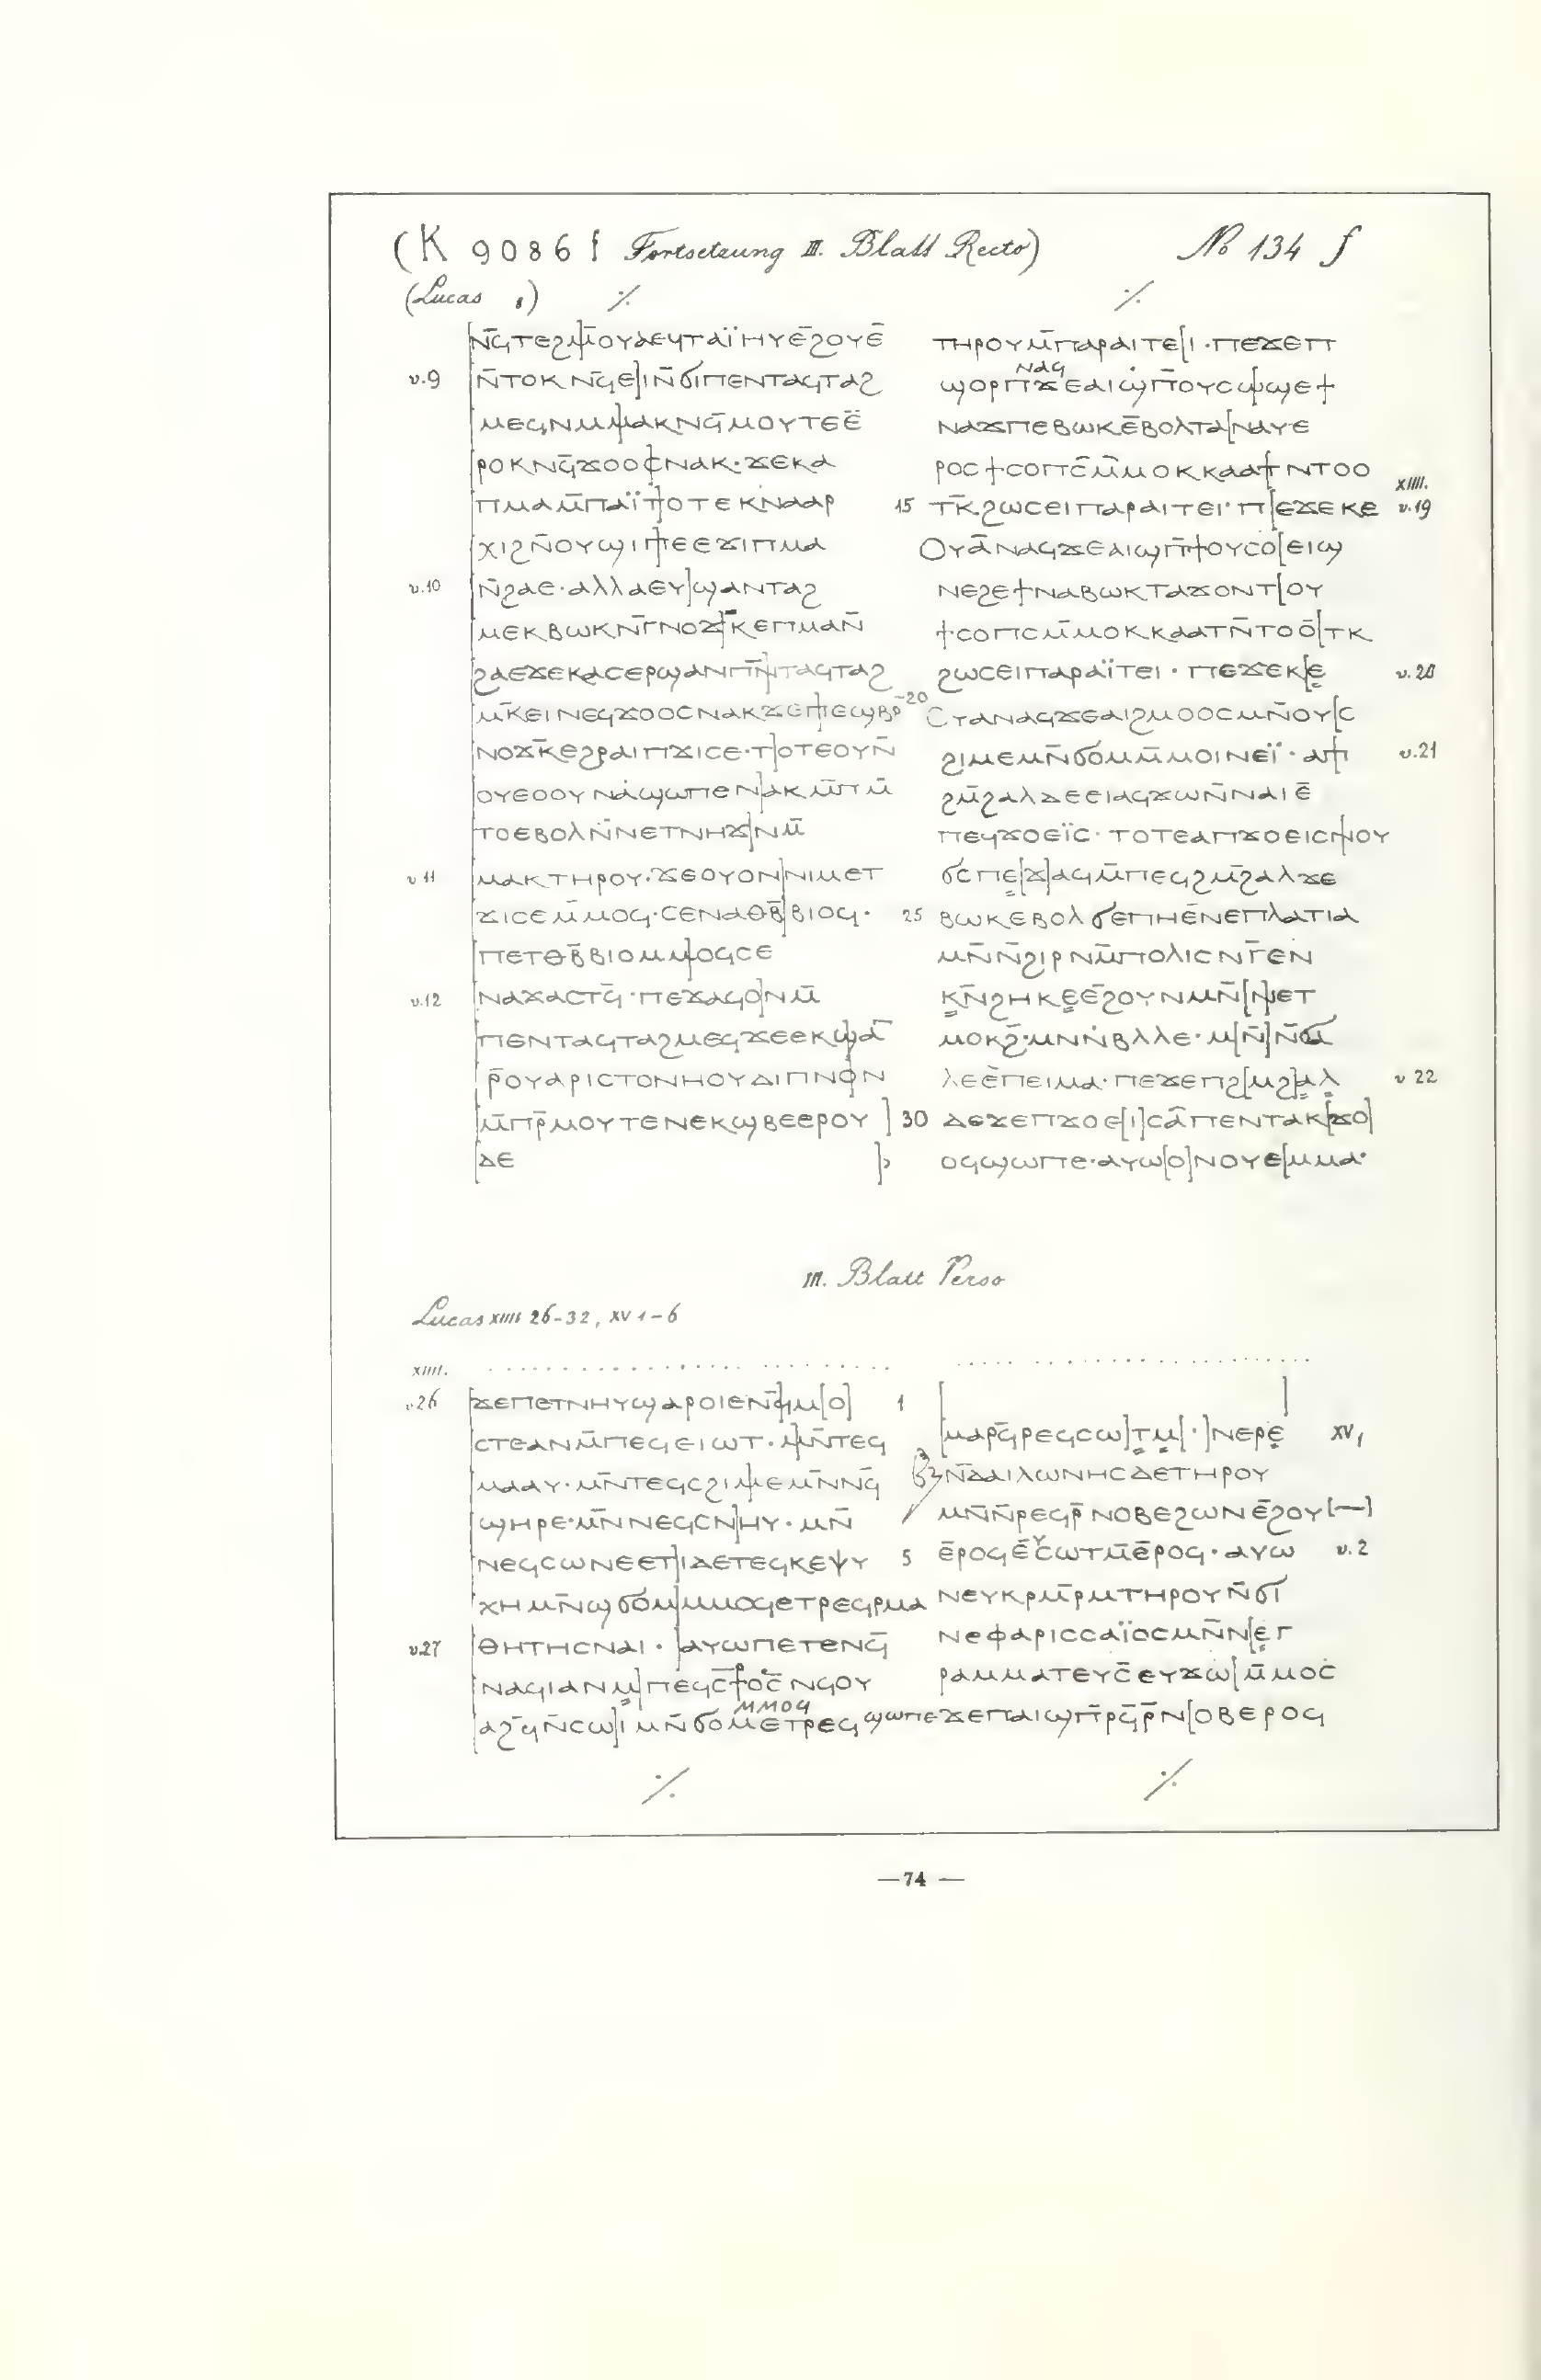 (K 9086 f Fortsetzung III. Blatt Recto) No 134 f
(Lucas )
ⲛ̄ϥ̄ⲧⲉϩⲙ̄]ⲟⲩⲁⲉϥⲧⲁⲓ̈ⲏⲩⲉ̄ϩⲟⲩⲉ̄
v.9 [ⲛ̄ⲧⲟⲕ ⲛ̄ϥ̄ⲉ]ⲓⲛ̄ϭⲓⲡⲉⲛⲧⲁϥⲧⲁϩ
[ⲙⲉϥⲛⲙⲙ]ⲁⲕⲛϥ̄ⲙⲟⲩⲧⲉⲉ̈
[ⲣⲟⲕⲛϥ̄ϫⲟⲟⲥ]ⲛⲁⲕ·ϫⲉⲕⲁ
[ⲡⲙⲁⲙ̄ⲡⲁⲓ̈ⲧ]ⲟⲧⲉⲕⲛⲁⲁⲣ
[ⲭⲓϩⲛ̄ⲟⲩϣⲓⲡ]ⲉⲉϫⲓⲡⲙⲁ
v.10 [ⲛ̄ϩⲁⲉ·ⲁⲗⲗⲁⲉⲩ]ϣⲁⲛⲧⲁϩ
[ⲙⲉⲕⲃⲱⲕⲛⲅ̄ⲛⲟϫ]ⲕ̄ⲉⲡⲙⲁⲛ̄
[ϩⲁⲉϫⲉⲕⲁⲥⲉⲣϣⲁⲛⲡⲛ̄]ⲧⲁϥⲧⲁϩ
[ⲙ̄ⲕⲉⲓⲛⲉϥϫⲟⲟⲥⲛⲁⲕϫⲉⲡ]ⲉϣⲃⲣ̄
[ⲛⲟϫⲕ̄ⲉϩⲣⲁⲓⲡϫⲓⲥⲉ·ⲧ]ⲟⲧⲉⲟⲩⲛ̄
[ⲟⲩⲉⲟⲟⲩⲛⲁϣⲱⲡⲉⲛ]ⲁⲕⲙ̄ⲡⲙ̄
[ⲧⲟⲉⲃⲟⲗⲛ̄ⲛⲉⲧⲛⲏϫ]ⲛⲙ̄
v 11 [ⲙⲁⲕⲧⲏⲣⲟⲩ·ϫⲉⲟⲩⲟⲛ]ⲛⲓⲙⲉⲧ
[ϫⲓⲥⲉⲙ̄ⲙⲟϥ·ⲥⲉⲛⲁⲑⲃ̄]ⲃⲓⲟϥ·
[ⲡⲉⲧⲑⲃ̄ⲃⲓⲟⲙⲙ]ⲟϥⲥⲉ
v.12 [ⲛⲁϫⲁⲥⲧϥ̄·ⲡⲉϫⲁϥⲟ]ⲛⲙ̄
[ⲡⲉⲛⲧⲁϥⲧⲁϩⲙⲉϥϫⲉⲉⲕϣⲁ̄
[ⲣ̄ⲟⲩⲁⲣⲓⲥⲧⲟⲛⲏⲟⲩⲇⲓⲡⲛⲟⲛ
[ⲙ̄ⲡⲣ̄ⲙⲟⲩⲧⲉⲛⲉⲕϣⲃⲉⲉⲣⲟⲩ ]
[ⲇⲉ ]
ⲧⲏⲣⲟⲩⲙ̄ⲡⲁⲣⲁⲓⲧⲉ[ⲓ·ⲡⲉϫⲉⲡ
ⲛⲁϥ
ϣⲟⲣⲡϫⲉⲁⲓϣⲡ̄ⲟⲩⲥⲱϣⲉϯ
ⲛⲁϫⲡⲉⲃⲱⲕⲉ̄ⲃⲟⲗⲧⲁ[ⲛⲁⲩⲉ
ⲣⲟⲥϯⲥⲟⲡⲥ̄ⲙ̄ⲙⲟⲕⲕⲁⲁⲧ[ⲛⲧⲟⲟ
15 ⲧⲕ̄ϩⲱⲥⲉⲓⲡⲁⲣⲁⲓⲧⲉⲓ·ⲡ[ⲉϫⲉⲕⲉ XIIII. v.19
ⲟⲩⲁ̄ⲛⲁϥϫⲉⲁⲓϣⲡ̄ϯⲟⲩⲥⲟ[ⲉⲓϣ
ⲛⲉϩⲉϯⲛⲁⲃⲱⲕⲧⲁϫⲟⲛⲧ[ⲟⲩ
ϯⲥⲟⲡⲥⲙ̄ⲙⲟⲕⲕⲁⲁⲧⲛ̄ⲧⲟⲟ̄[ⲧⲕ
ϩⲱⲥⲉⲓⲡⲁⲣⲁⲓ̈ⲧⲉⲓ·ⲡⲉϫⲉⲕ[ⲉ v.20
20 ⲟⲩⲁⲛⲁϥϫⲉⲁⲓϩⲙⲟⲟⲥⲙⲛ̄ⲟⲩ[ⲥ
ϩⲓⲙⲉⲙⲛ̄ϭⲟⲙⲙ̄ⲙⲟⲓⲛⲉⲓ̈·ⲁⲡ v.21
ϩⲙ̄ϩⲁⲗⲇⲉⲉⲓⲁϥϫⲱⲛ̄ⲛⲁⲓⲉ̄
ⲡⲉϥϫⲟⲉⲓ̈ⲥ·ⲧⲟⲧⲉⲁⲡϫⲟⲉⲓⲥⲛⲟⲩ
ϭⲥⲡⲉ[ϫ]ⲁϥⲙ̄ⲡⲉϥϩⲙ̄ϩⲁⲗϫⲉ
25 ⲃⲱⲕⲉⲃⲟⲗϭⲉⲡⲏⲉ̄ⲛⲉⲡⲗⲁⲧⲓⲁ
ⲙⲛ̄ⲛ̄ϩⲓⲣⲛⲙ̄ⲡⲟⲗⲓⲥⲛⲅ̄ⲉⲛ
ⲕⲛ̄ϩⲏⲕⲉⲉ̄ϩⲟⲩⲛⲙⲛ̄[ⲛ]ⲉⲧ
ⲙⲟⲕϩ̄·ⲙⲛⲛ̄ⲃⲗⲗⲉ·ⲙ[ⲛ̄]ⲛ̄ϭⲁ
ⲗⲉⲉ̀ⲡⲉⲓⲙⲁ·ⲡⲉϫⲉⲡϩ[ⲙϩ]ⲁⲗ v 22
30 ⲇⲉϫⲉⲡϫⲟⲉ[ⲓ]ⲥⲁ̂ⲡⲉⲛⲧⲁⲕ[ϫⲟ]
ⲟϥϣⲱⲡⲉ·ⲁⲩⲱ[ⲟ]ⲛⲟⲩⲉ[ⲙⲙⲁ·
III. Blatt Verso
Lucas XIIII 26-32, XV 1-6
XIIII.
v.26 [ϫⲉⲡⲉⲧⲛⲏⲩϣⲁⲣⲟⲓⲉⲛϥ̄ⲙ[ⲟ]
[ⲥⲧⲉⲁⲛⲙ̄ⲡⲉϥⲉⲓⲱⲧ·ⲙ]ⲛ̄ⲧⲉϥ
[ⲙⲁⲁⲩ·ⲙⲛ̄ⲧⲉϥⲥϩⲓⲙ]ⲉⲙⲛ̄ⲛϥ̄
[ϣⲏⲣⲉ·ⲙⲛ̄ⲛⲉϥⲥⲛ]ⲏⲩ·ⲙⲛ̄
[ⲛⲉϥⲥⲱⲛⲉⲉⲧ]ⲓⲇⲉⲧⲉϥⲕⲉⲯⲩ
[ⲭⲏⲙⲛ̄ϣϭⲟⲙ]ⲙⲙⲟϥⲉⲧⲣⲉϥⲣⲙⲁ
v.27 [ⲑⲏⲧⲏⲥⲛⲁⲓ·]ⲁⲩⲱⲡⲉⲧⲉⲛϥ̄
[ⲛⲁϥⲓⲁⲛⲙ]ⲡⲉϥⲥ̄ⲣ̄ⲟⲥ̄ⲛϥⲟⲩ
ⲙⲙⲟϥ
[ⲁϩϥ̄ⲛ̄ⲥⲱ]ⲓⲙⲛ̄ϭⲟⲙⲉⲧⲣⲉϥϣⲱⲡⲉ
1 [ ]
[ⲙⲁⲣϥ̄ⲣⲉϥⲥⲱ]ⲧⲙ[·]ⲛⲉⲣⲉ XV,
ⲛ̄ⲇⲁⲓⲗⲱⲛⲏⲥⲇⲉⲧⲏⲣⲟⲩ
ⲙⲛ̄ⲛ̄ⲣⲉϥⲣ̄ⲛⲟⲃⲉϩⲱⲛⲉ̄ϩⲟⲩ[—]
5 ⲉ̄ⲣⲟϥⲉ̄ⲥⲱⲧⲙ̄ⲉ̄ⲣⲟϥ·ⲁⲩⲱ v.2
ⲛⲉⲩⲕⲣⲙ̄ⲣⲙⲧⲏⲣⲟⲩⲛ̄ϭⲓ
ⲛⲉⲫⲁⲣⲓⲥⲥⲁⲓ̈ⲟⲥⲙⲛ̄ⲛ[ⲉⲅ
ⲣⲁⲙⲙⲁⲧⲉⲩⲥ̄ⲉⲩϫⲱ[ⲙ̄ⲙⲟⲥ
ϫⲉⲡⲁⲓϣⲡ̄ⲣϥ̄ⲣ̄ⲛ[ⲟⲃⲉⲣⲟϥ
—74—